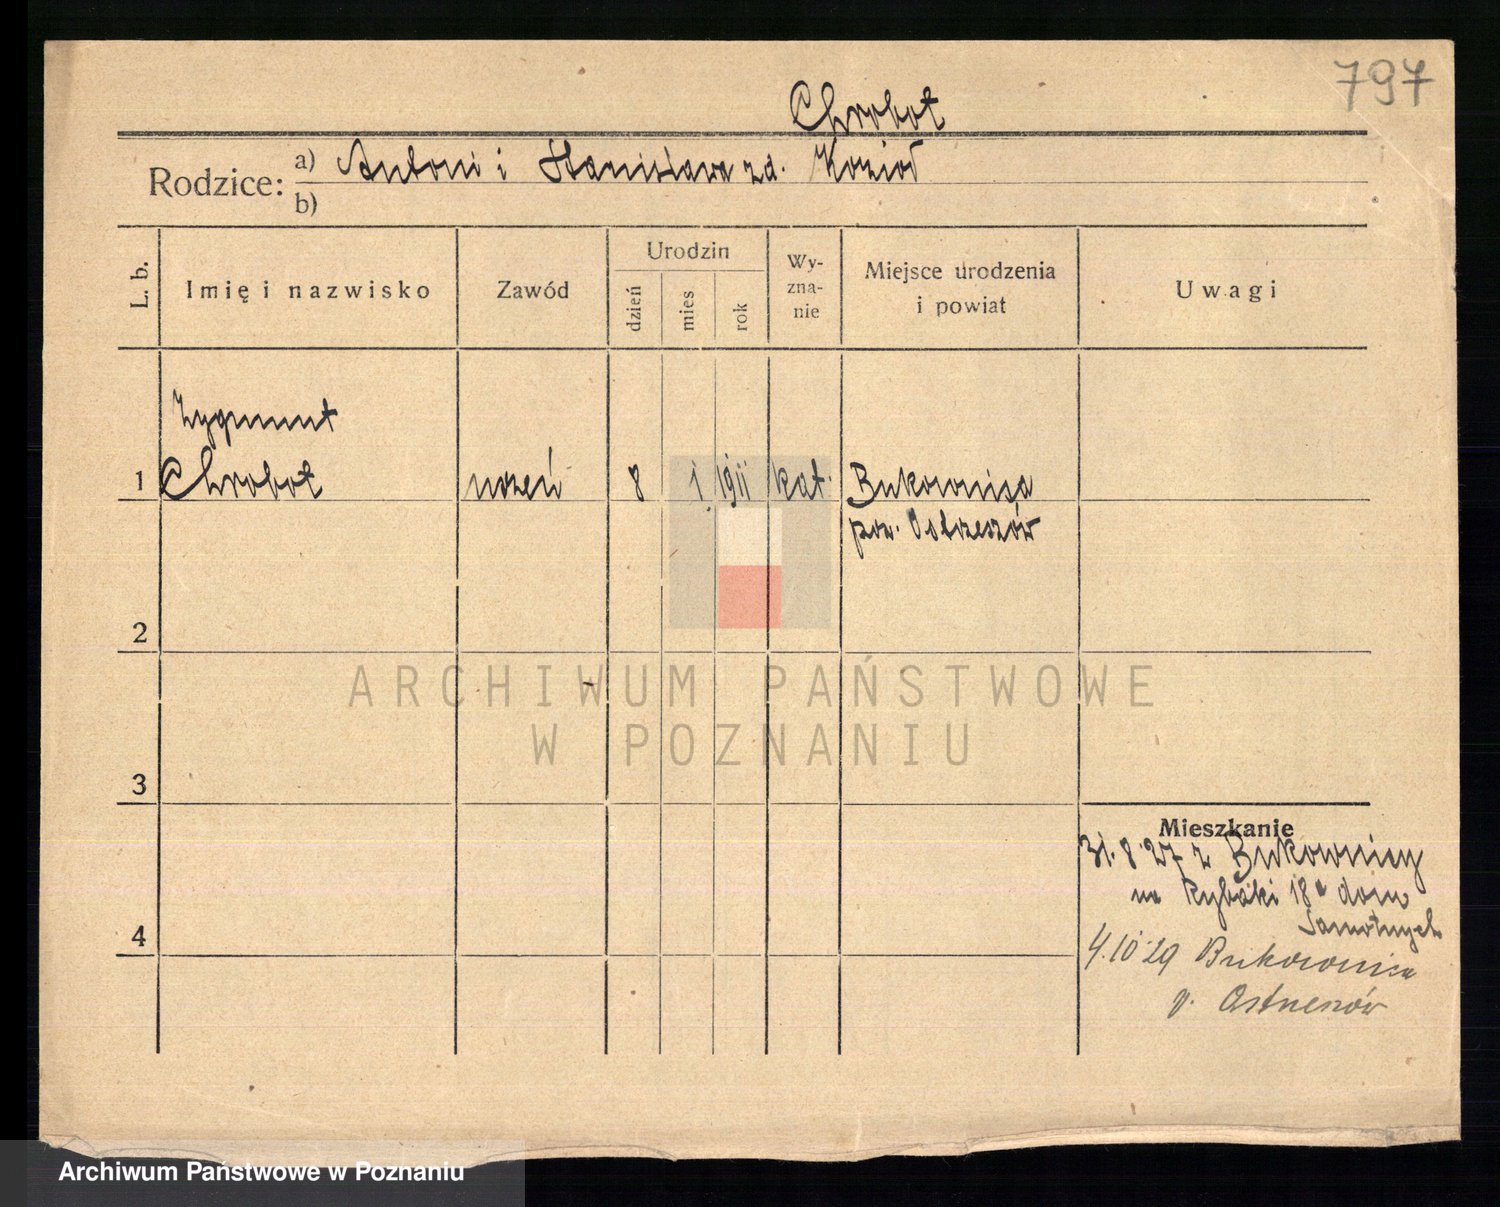 797
Chrobot
Rodzice: a) Antoni i Stanisława zd. Kozioł
b)
L. b.
Imię i nazwisko
Zawód
Urodzin
dzień
mies
rok
Wy-
zna-
nie
Miejsce urodzenia
i powiat
Uwagi
Zygmunt
1 Chrobot uczeń 8 1 1911 kat. Bukownica
pow. Ostrzeszów
2
ARCHIWUM PAŃSTWOWE
W POZNANIU
3
Mieszkanie
31.8.27 z Bukownicy
na Rybaki 18a dom
Samotnych
4
4.10.29 Bukownica
p. Ostrzeszów
Archiwum Państwowe w Poznaniu